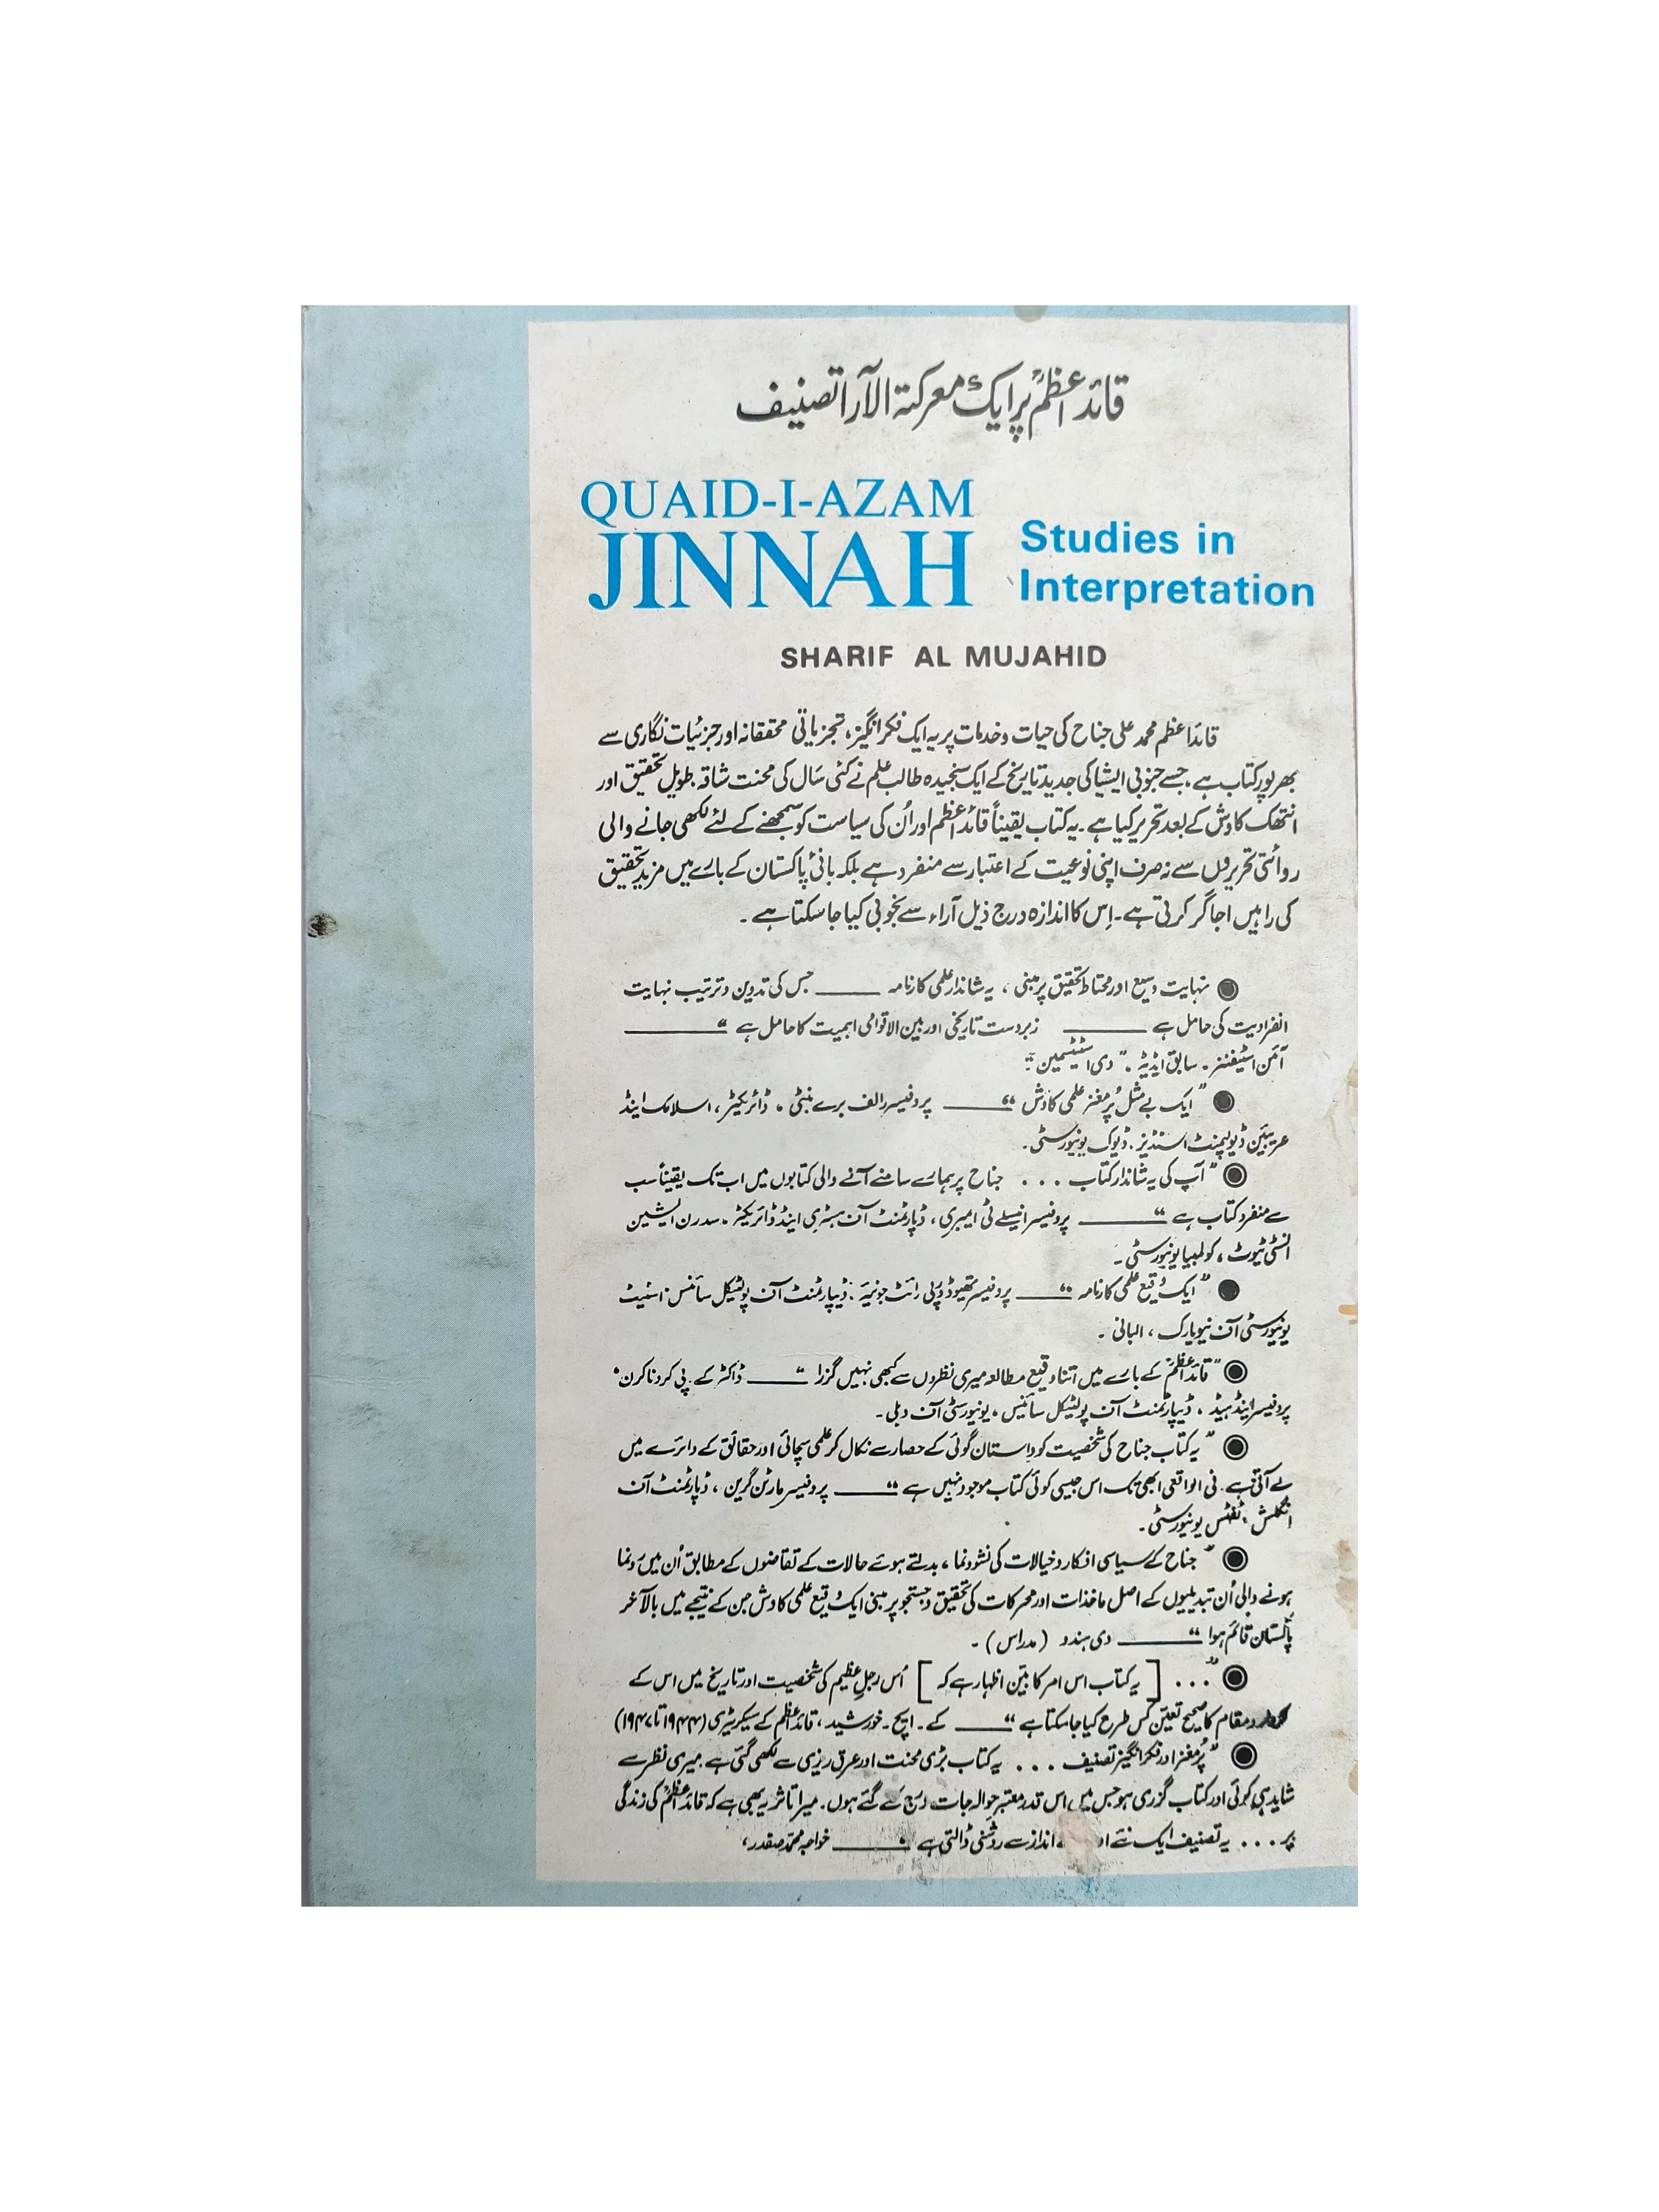 قائد اعظمؒ پر ایک معرکۃ الآرا تصنیف
QUAID-I-AZAM
JINNAH
Studies in
Interpretation
SHARIF AL MUJAHID
قائد اعظم محمد علی جناح کی حیات و خدمات پر یہ ایک فکر انگیز، تجزیاتی محققانہ اور جزئیات نگاری سے
بھرپور کتاب ہے۔ جسے جنوبی ایشیا کی جدید تاریخ کے ایک سنجیدہ طالب علم نے کئی سال کی محنت شاقہ، طویل تحقیق اور
انتھک کاوش کے بعد تحریر کیا ہے۔ یہ کتاب یقیناً قائد اعظم اور اُن کی سیاست کو سمجھنے کے لئے لکھی جانے والی
روائتی تحریروں سے نہ صرف اپنی نوعیت کے اعتبار سے منفرد ہے بلکہ بانیٔ پاکستان کے بارے میں مزید تحقیق
کی راہیں اجاگر کرتی ہے۔ اِس کا اندازہ درج ذیل آراء سے بخوبی کیا جا سکتا ہے۔
◉ نہایت وسیع اور محتاط تحقیق پر مبنی، یہ شاندار علمی کارنامہ ـــــ جس کی تدوین و ترتیب نہایت
انفرادیت کی حامل ہے ـــــ زبردست تاریخی اور بین الاقوامی اہمیت کا حامل ہے“ ـــــ
آئن اسٹیفنز۔ سابق ایڈیٹر۔ ”دی اسٹیٹسمین“۔
◉ ”ایک بے مثل پُر مغز علمی کاوش“ ـــــ پروفیسر رالف برے بنٹی، ڈائریکٹر، اسلامک اینڈ
عریبین ڈیولپمنٹ اسٹڈیز، ڈیوک یونیورسٹی۔
◉ ”آپ کی یہ شاندار کتاب ... جناح پر ہمارے سامنے آنے والی کتابوں میں اب تک یقیناً سب
سے منفرد کتاب ہے“ ـــــ پروفیسر اینسلے ٹی ایمبری، ڈپارٹمنٹ آف ہسٹری اینڈ ڈائریکٹر، سدرن ایشین
انسٹی ٹیوٹ، کولمبیا یونیورسٹی۔
◉ ”ایک وقیع علمی کارنامہ“ ـــــ پروفیسر تھیوڈور پی رائٹ جونیئر، ڈیپارٹمنٹ آف پولٹیکل سائنس، اسٹیٹ
یونیورسٹی آف نیویارک، البانی۔
◉ ”قائد اعظمؒ کے بارے میں اتنا وقیع مطالعہ میری نظروں سے کبھی نہیں گزرا“ ـــــ ڈاکٹر کے۔ پی کروناکرن،
پروفیسر اینڈ ہیڈ، ڈیپارٹمنٹ آف پولٹیکل سائنس، یونیورسٹی آف دہلی۔
◉ ”یہ کتاب جناح کی شخصیت کو داستان گوئی کے حصار سے نکال کر علمی سچائی اور حقائق کے دائرے میں
لے آتی ہے۔ فی الواقعی ابھی تک اس جیسی کوئی کتاب موجود نہیں ہے“ ـــــ پروفیسر مارٹن گرین، ڈپارٹمنٹ آف
انگلش، ٹفٹس یونیورسٹی۔
◉ ”جناح کے سیاسی افکار و خیالات کی نشوونما، بدلتے ہوئے حالات کے تقاضوں کے مطابق اُن میں رونما
ہونے والی اُن تبدیلیوں کے اصل ماخذات اور محرکات کی تحقیق و جستجو پر مبنی ایک وقیع علمی کاوش جن کے نتیجے میں بالآخر
پاکستان قائم ہوا“ ـــــ دی ہندو (مدراس)۔
◉ ”... [ یہ کتاب اس امر کا بیّن اظہار ہے کہ ] اُس رجلِ عظیم کی شخصیت اور تاریخ میں اس کے
کردار و مقام کا صحیح تعیّن کس طرح کیا جا سکتا ہے“ ـــــ کے۔ ایچ۔ خورشید، قائد اعظم کے سیکریٹری (۱۹۴۴ تا ۱۹۴۷)
◉ ”پُر مغز اور فکر انگیز تصنیف ... یہ کتاب بڑی محنت اور عرق ریزی سے لکھی گئی ہے۔ میری نظر سے
شاید ہی کوئی اور کتاب گزری ہو جس میں اس قدر معتبر حوالہ جات درج کئے گئے ہوں۔ میرا تاثر یہ بھی ہے کہ قائد اعظمؒ کی زندگی
پر ... یہ تصنیف ایک نئے انداز سے روشنی ڈالتی ہے“ ـــــ خواجہ محمد صفدر،